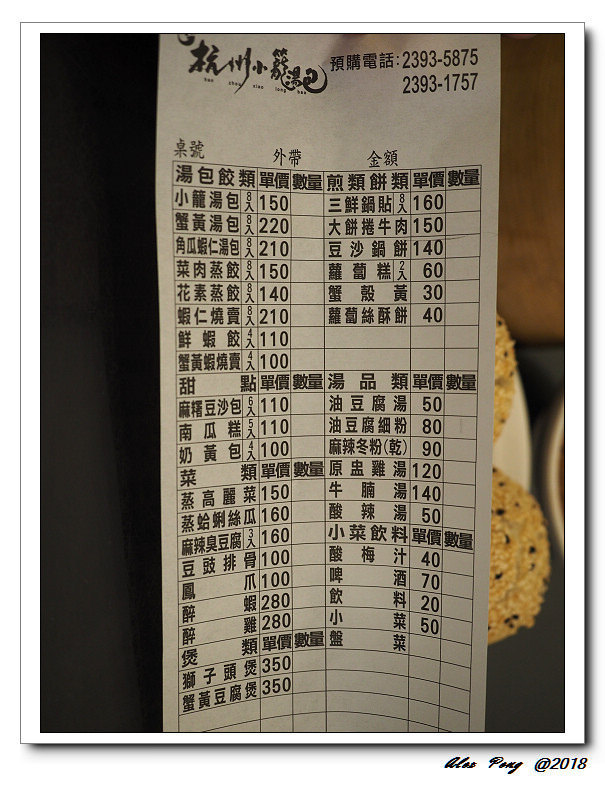 杭州小籠湯包
hang zhou xiao long bao
預購電話:2393-5875
2393-1757
桌號 外帶 金額
湯包餃類 單價 數量 煎類餅類 單價 數量
小籠湯包 8入 150 三鮮鍋貼 8入 160
蟹黃湯包 8入 220 大餅捲牛肉 150
角瓜蝦仁湯包 8入 210 豆沙鍋餅 140
菜肉蒸餃 8入 150 蘿蔔糕 2入 60
花素蒸餃 8入 140 蟹殼黃 30
蝦仁燒賣 8入 210 蘿蔔絲酥餅 40
鮮蝦餃 4入 110
蟹黃蝦燒賣 4入 100
甜點 單價 數量 湯品類 單價 數量
麻糬豆沙包 6入 110 油豆腐湯 50
南瓜糕 5入 110 油豆腐細粉 80
奶黃包 4入 100 麻辣冬粉(乾) 90
菜類 單價 數量 原盅雞湯 120
蒸高麗菜 150 牛腩湯 140
蒸蛤蜊絲瓜 160 酸辣湯 50
麻辣臭豆腐 3入 160 小菜飲料 單價 數量
豆豉排骨 100 酸梅汁 40
鳳爪 100 啤酒 70
醉蝦 280 飲料 20
醉雞 280 小菜 50
煲類 單價 數量 盤菜
獅子頭煲 350
蟹黃豆腐煲 350
Alex Peng @2018